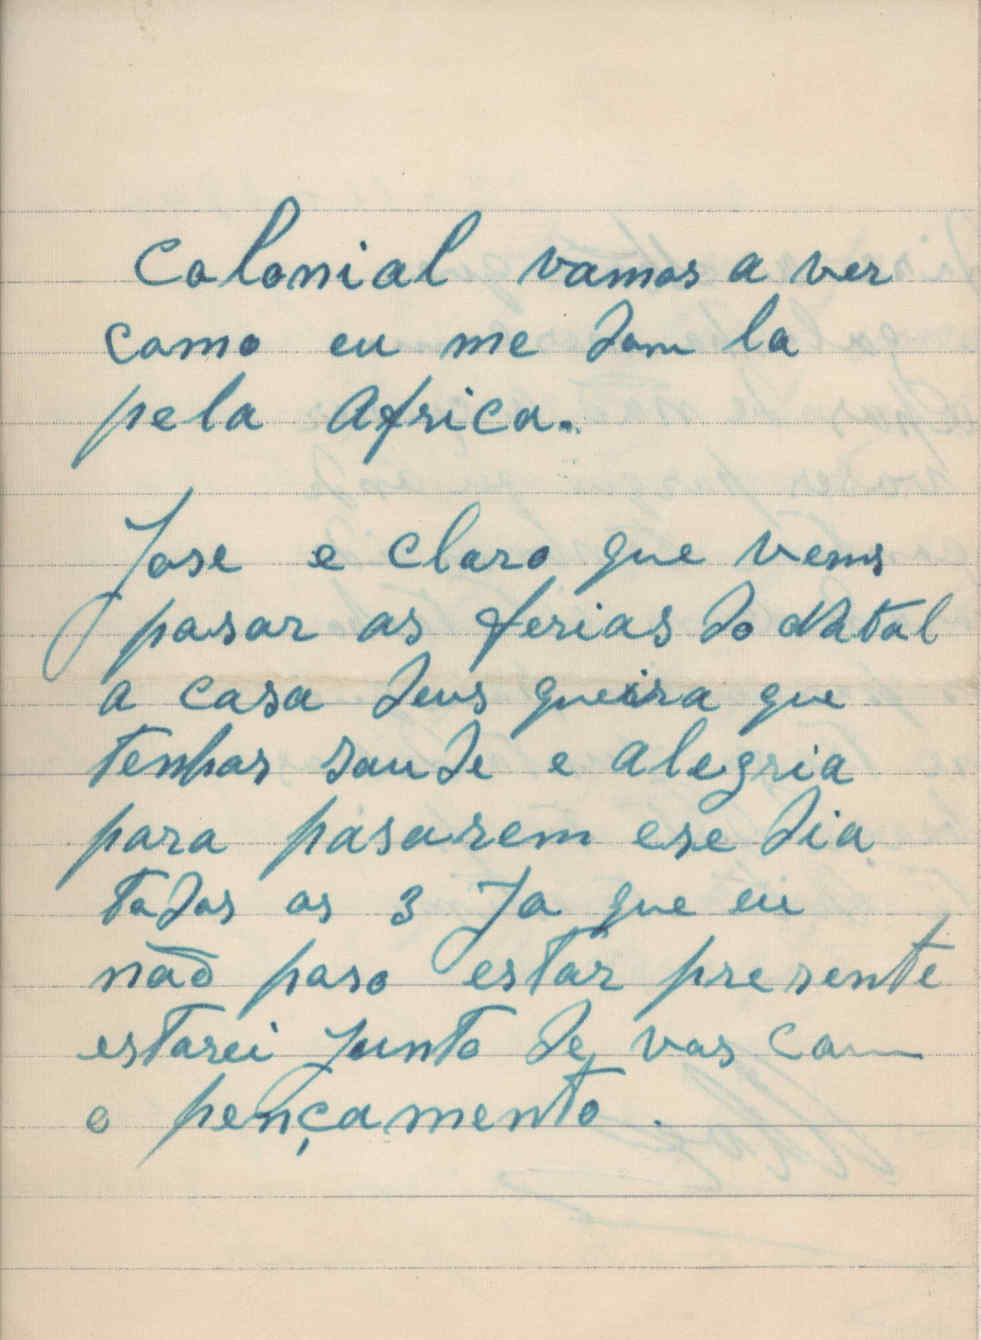 Colonial vamos a ver
como eu me dom la
pela Africa.
Jose e claro que vens
pasar as ferias do Natal
a casa deus queira que
tenhas saude e alegria
para pasarem ese dia
todos os 3 Ja que eu
não poso estar presente
estarei junto de vos com
o pençamento.